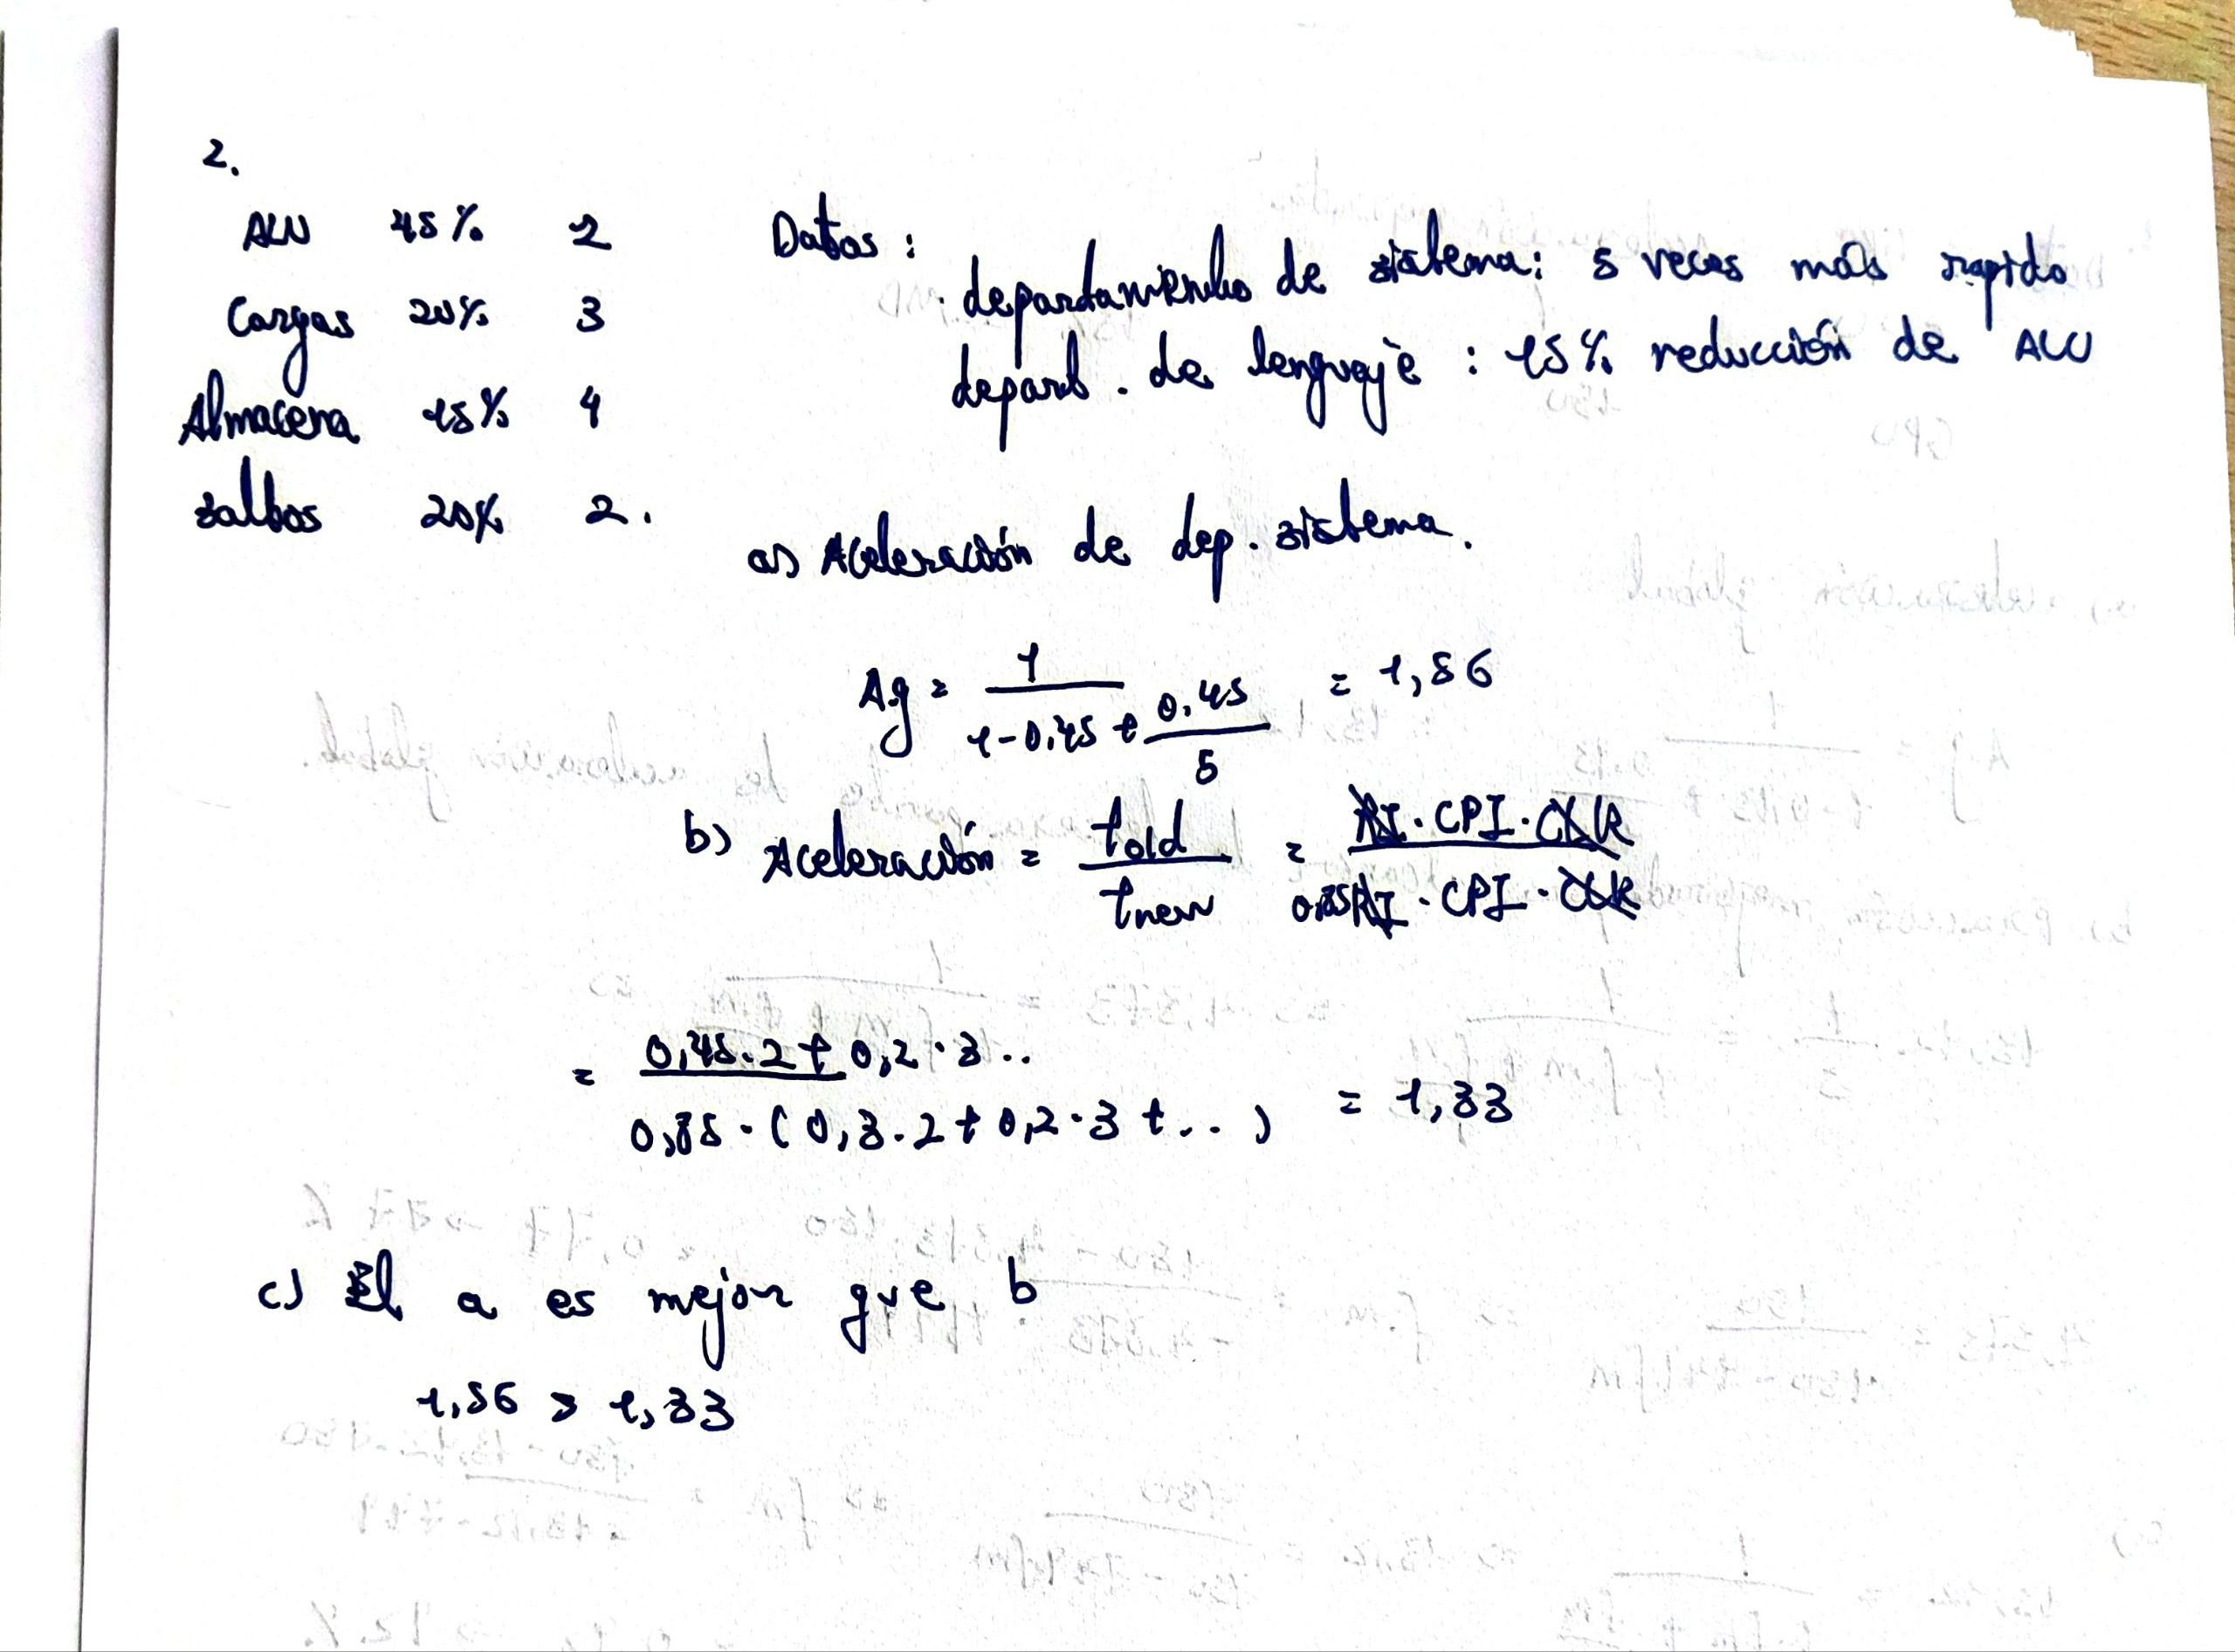 2.
ALU 45% 2
Cargas 20% 3
Almacena 15% 4
saltos 20% 2.
Datos:
· departamento de sistema: 5 veces más rapido
depart. de lenguaje: 15% reducción de ALU
a) Aceleración de dep. sistema.
Ag = 1 / (1-0,45 + 0,45/5) = 1,56
b) Aceleración = told / tnew = NI·CPI·CLK / 0,85NI·CPI·CLK
= 0,45·2 + 0,2·3.. / 0,85·(0,3·2+0,2·3+..) = 1,33
c) El a es mejor que b
1,56 > 1,33